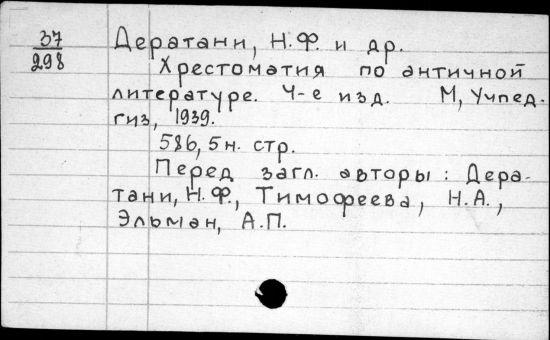 37 Дератани, Н.Ф. и др.
298
Хрестоматия по античной
литературе. 4-е изд. М, Учпед-
гиз, 1939.
586, 5 н. стр.
Перед загл. авторы: Дера-
тани, Н.Ф., Тимофеева, Н.А.,
Эльман, А.П.